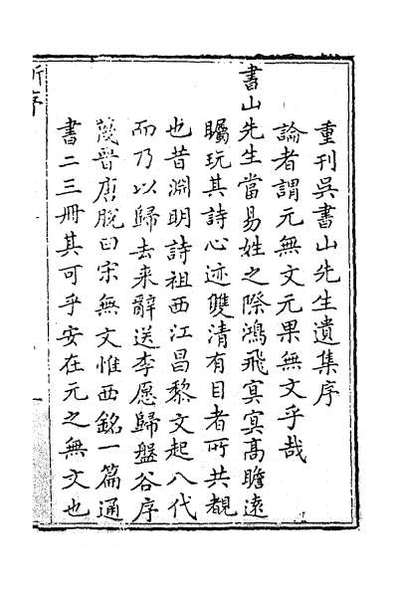 重刊吳書山先生遺集序
論者謂元無文元果無文乎哉
書山先生當易姓之際鴻飛冥冥高瞻遠
矚玩其詩心迹雙清有目者所共覩
也昔淵明詩祖西江昌黎文起八代
而乃以歸去来辭送李愿歸盤谷序
蔑晉唐脫曰宋無文惟西銘一篇通
書二三冊其可乎安在元之無文也
新序